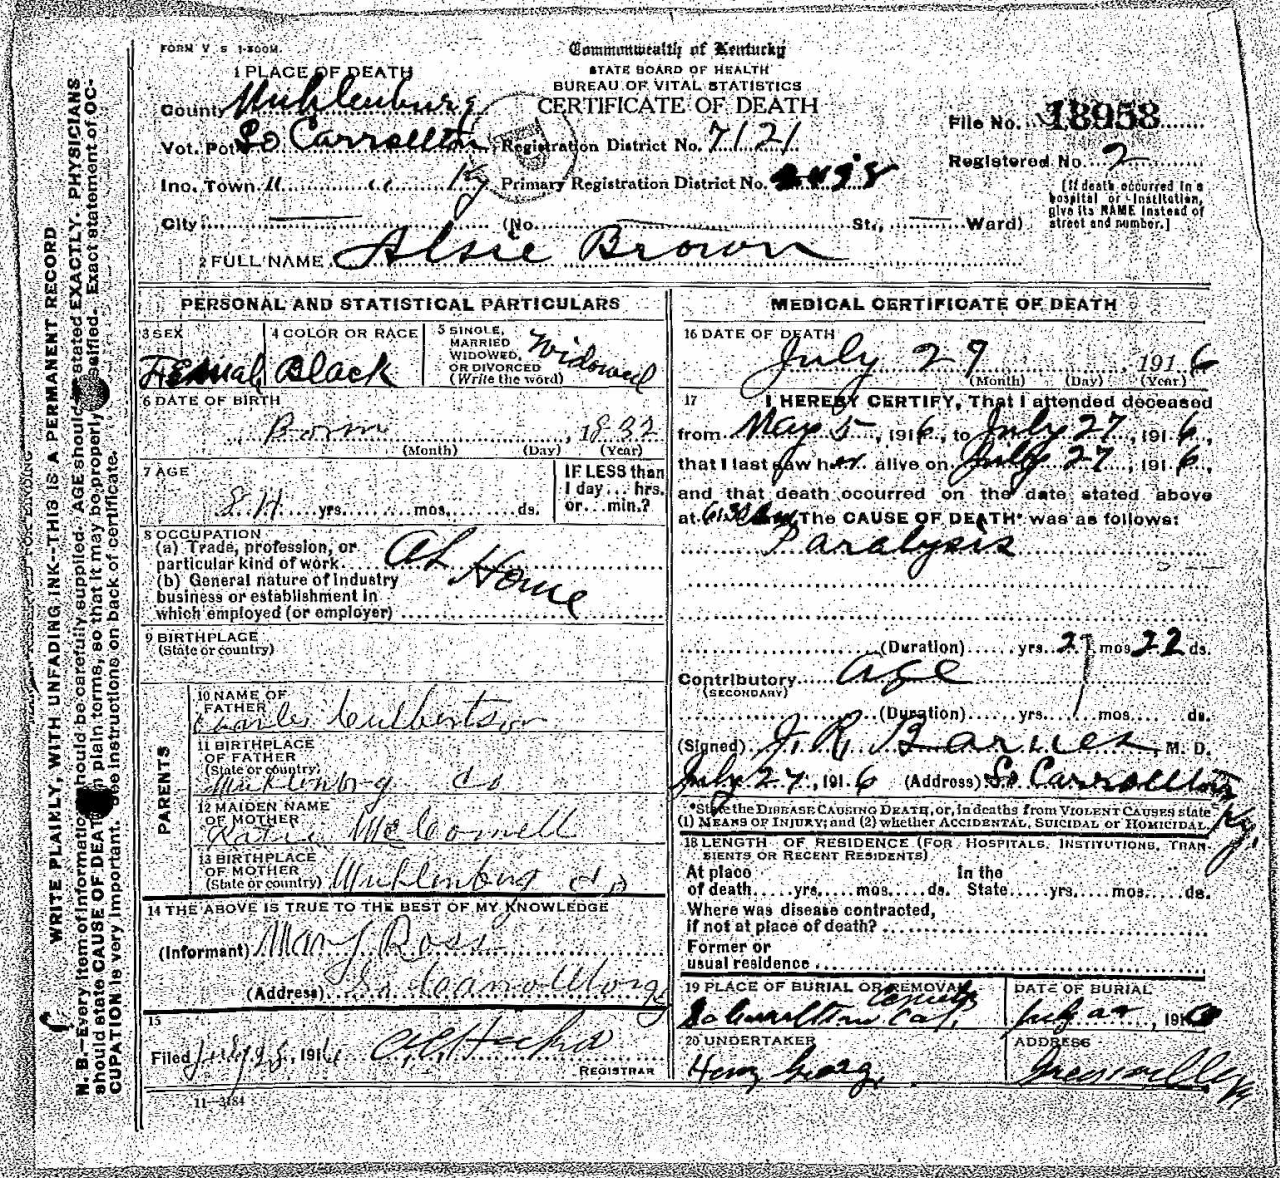 FORM V. S. 1-300M.
Commonwealth of Kentucky
STATE BOARD OF HEALTH
BUREAU OF VITAL STATISTICS
CERTIFICATE OF DEATH
1 PLACE OF DEATH
County Muhlenburg
Vot. Pct. So Carrollton Registration District No. 7121
Inc. Town " " Ky Primary Registration District No.
City (No. St., Ward)
File No. 18958
Registered No. 2
[If death occurred in a
hospital or institution,
give its NAME instead of
street and number.]
2 FULL NAME Alsie Brown
PERSONAL AND STATISTICAL PARTICULARS
3 SEX
Femal
4 COLOR OR RACE
Black
5 SINGLE,
MARRIED
WIDOWED,
OR DIVORCED
(Write the word)
Widowed
6 DATE OF BIRTH
Born, 1832
(Month) (Day) (Year)
7 AGE
84 yrs. mos. ds.
IF LESS than
1 day... hrs.
or... min.?
8 OCCUPATION
(a) Trade, profession, or
particular kind of work At Home
(b) General nature of industry
business or establishment in
which employed (or employer)
9 BIRTHPLACE
(State or country)
PARENTS
10 NAME OF
FATHER
Charles Culbertson
11 BIRTHPLACE
OF FATHER
(State or country)
Muhlenbrg Co
12 MAIDEN NAME
OF MOTHER
Katie McConnell
13 BIRTHPLACE
OF MOTHER
(State or country) Muhlenburg Co
14 THE ABOVE IS TRUE TO THE BEST OF MY KNOWLEDGE
(Informant) Mary Ross
(Address)
15
Filed July 28, 1916
REGISTRAR
11-3184
MEDICAL CERTIFICATE OF DEATH
16 DATE OF DEATH
July 27, 1916
(Month) (Day) (Year)
17 I HEREBY CERTIFY, That I attended deceased
from May 5, 1916, to July 27, 1916,
that I last saw her alive on July 27, 1916,
and that death occurred on the date stated above
at 6:30 The CAUSE OF DEATH* was as follows:
Paralysis
(Duration) yrs. 2 mos 22 ds.
Contributory Age
(SECONDARY)
(Duration) yrs. mos. ds.
(Signed) J. R. Barnes M. D.
July 27, 1916 (Address) So Carrollton Ky.
*State the DISEASE CAUSING DEATH, or, in deaths from VIOLENT CAUSES state
(1) MEANS OF INJURY; and (2) whether ACCIDENTAL, SUICIDAL or HOMICIDAL.
18 LENGTH OF RESIDENCE (FOR HOSPITALS, INSTITUTIONS, TRAN-
SIENTS OR RECENT RESIDENTS)
At place In the
of death yrs. mos. ds. State yrs. mos. ds.
Where was disease contracted,
if not at place of death?
Former or
usual residence
19 PLACE OF BURIAL OR REMOVAL
DATE OF BURIAL
20 UNDERTAKER
Henry George
ADDRESS
Greenville Ky
WRITE PLAINLY, WITH UNFADING INK--THIS IS A PERMANENT RECORD
N. B.--Every item of information should be carefully supplied. AGE should stated EXACTLY. PHYSICIANS
should state CAUSE OF DEATH plain terms, so that it may be properly classified. Exact statement of OC-
CUPATION is very important. See instructions on back of certificate.